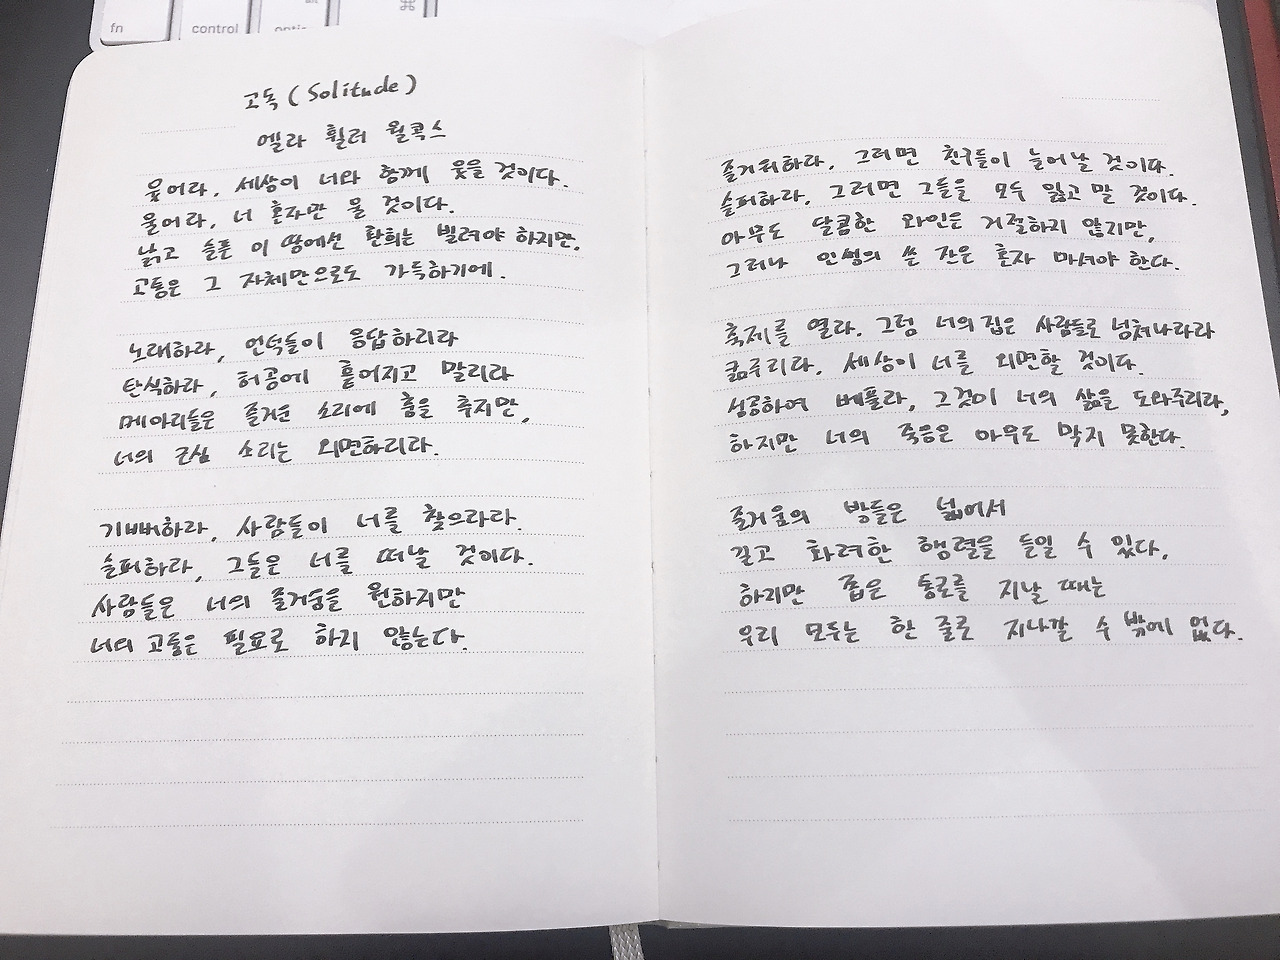 fn
control
⌘
고독 (Solitude)
엘라 휠러 윌콕스
웃어라, 세상이 너와 함께 웃을 것이다.
울어라, 너 혼자만 울 것이다.
낡고 슬픈 이 땅에선 환희는 빌려야 하지만,
고통은 그 자체만으로도 가득하기에.
노래하라, 언덕들이 응답하리라
탄식하라, 허공에 흩어지고 말리라
메아리들은 즐거운 소리에 춤을 추지만,
너의 근심 소리는 외면하리라.
기뻐하라, 사람들이 너를 찾으리라.
슬퍼하라, 그들은 너를 떠날 것이다.
사람들은 너의 즐거움을 원하지만
너의 고통은 필요로 하지 않는다.
즐거워하라, 그러면 친구들이 늘어날 것이다.
슬퍼하라, 그러면 그들을 모두 잃고 말 것이다.
아무도 달콤한 와인은 거절하지 않지만,
그러나 인생의 쓴 잔은 혼자 마셔야 한다.
축제를 열라, 그럼 너의 집은 사람들로 넘쳐나리라
굶주리라, 세상이 너를 외면할 것이다.
성공하여 베풀라, 그것이 너의 삶을 도와주리라,
하지만 너의 죽음은 아무도 막지 못한다.
즐거움의 방들은 넓어서
길고 화려한 행렬을 들일 수 있다,
하지만 좁은 통로를 지날 때는
우리 모두는 한 줄로 지나갈 수 밖에 없다.